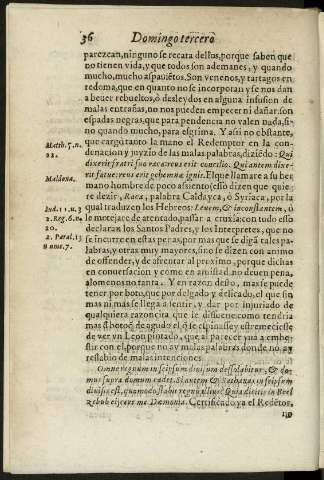 36 Domingo tercero
parezcan, ninguno se recata dellos, porque saben que
no tienen vida, y que todos son ademanes, y quando
mucho, mucho aspauiẽtos. Son venenos, y tartagos en
redoma, que en quanto no se incorporan y se nos dan
a beuer rebueltos, ò desleydos en alguna infusion de
malas entrañas, no nos pueden empecer ni dañar: son
espadas negras, que para pendencia no valen nada, si-
no quando mucho, para esgrima. Y assi no obstante,
Matth. 7. n. que cargó tanto la mano el Redemptor en la con-
22. denacion y juyzio de las malas palabras, diziẽdo: Qui
dixerit fratri suo raca reus erit concilio. Qui autem dixe-
rit fatue: reus erit gehennæ ignis. El que llamare a su her
Maldona. mano hombre de poco assiento (esso dizen que quie
re dezir, Raca, palabra Caldayca, ò Syriaca, por la
Iud. 11. n. 3 qual traduzen los Hebreos: Leuem, & inconstantem, ò
2. Reg. 6. n. le motejare de atentado, passar a cruxia: con todo esso
20. declaran los Santos Padres, y los Interpretes, que no
2. Paral. 13 se incurre en estas penas, por mas que se digã tales pa-
n. 7. labras, y otras muy mayores, sino se dizen con animo
de offender, y de afrentar al proximo, porque dichas
en conuersacion y como en amistad, no deuen pena,
alomenos no tanta. Y en razon desso, mas se puede
tener por boto, que por delgado y delicado, el que sin
mas ni mas se llega a sentir, y dar por injuriado de
qualquiera razoncita que le dissuene: como tendria
mas de boto, que de agudo el que se espinasse y estremeciesse
de ver vn Leon pintado, que al parecer yua a embe-
stir con el, porque no ay malas palabras donde no ay
resabio de malas intenciones.
Omne regnum in seipsum diuisum desolabitur, & do-
mus supra domum cadet. Si autem & Sathanas in seipsum
diuisus est, quomodo stabit regnum eius? Quia dicitis in Beel
zebub eijcere me Dæmonia. Certificado ya el Redẽtor,